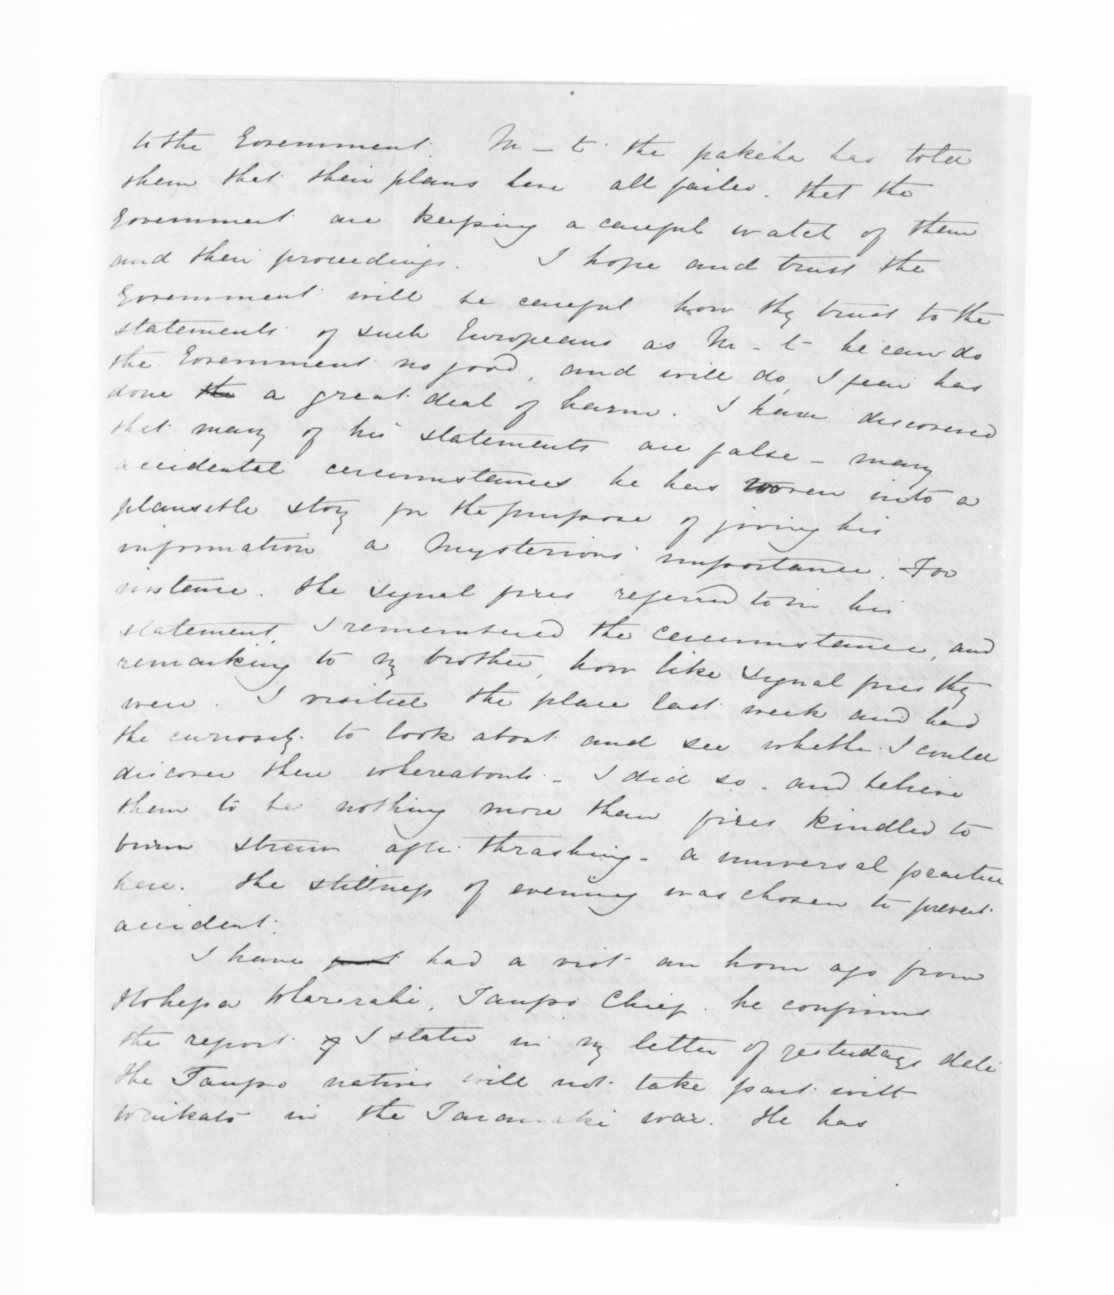 to the Government. M - t. the pakeha has told
them that their plans have all failed. that the
Government are keeping a careful watch of them
and their proceedings. I hope and trust the
Government will be careful how they trust to the
statements of such Europeans as M - t - he can do
the Government no good, and will do, I fear has
done the a great deal of harm. I have discovered
that many of his statements are false - many
accidental circumstances he has woven into a
plausible story for the purpose of giving his
information a mysterious importance. For
instance. the signal fires referred to in his
statement. I remembered the circumstance, and
remarking to my brother, how like signal fires they
were. I visited the place last week and had
the curiosity to look about and see whether I could
discover their whereabouts - I did so - and believe
them to be nothing more than fires kindled to
burn straw after thrashing - a universal practice
here. the stillness of evening was chosen to prevent
accident.
I have just had a visit an hour ago from
Hohepa, Taupo Chief. he confirms
the report I stated in my letter of yesterdays date
the Taupo natives will not take part with
Waikato in the Taranaki war. He has